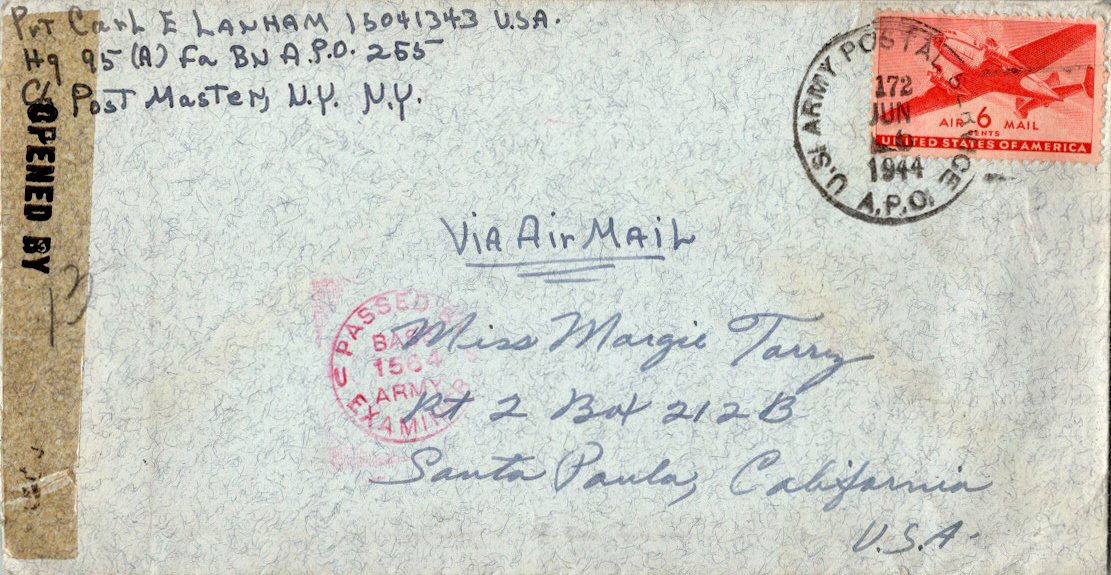 Pvt Carl E LANHAM 15041343 U.S.A.
Hq 95 (A) Fa BN A.P.O. 255
C/o Post Master, N.Y. N.Y.
OPENED BY
U.S. ARMY POSTAL SERVICE
172
JUN
1944
A.P.O.
AIR 6 MAIL
CENTS
UNITED STATES OF AMERICA
Via Air MAIL
PASSED
BASE
1564
ARMY
EXAMINER
Miss Margie Tarry
Rt 2 Box 212 B
Santa Paula, California
U.S.A.